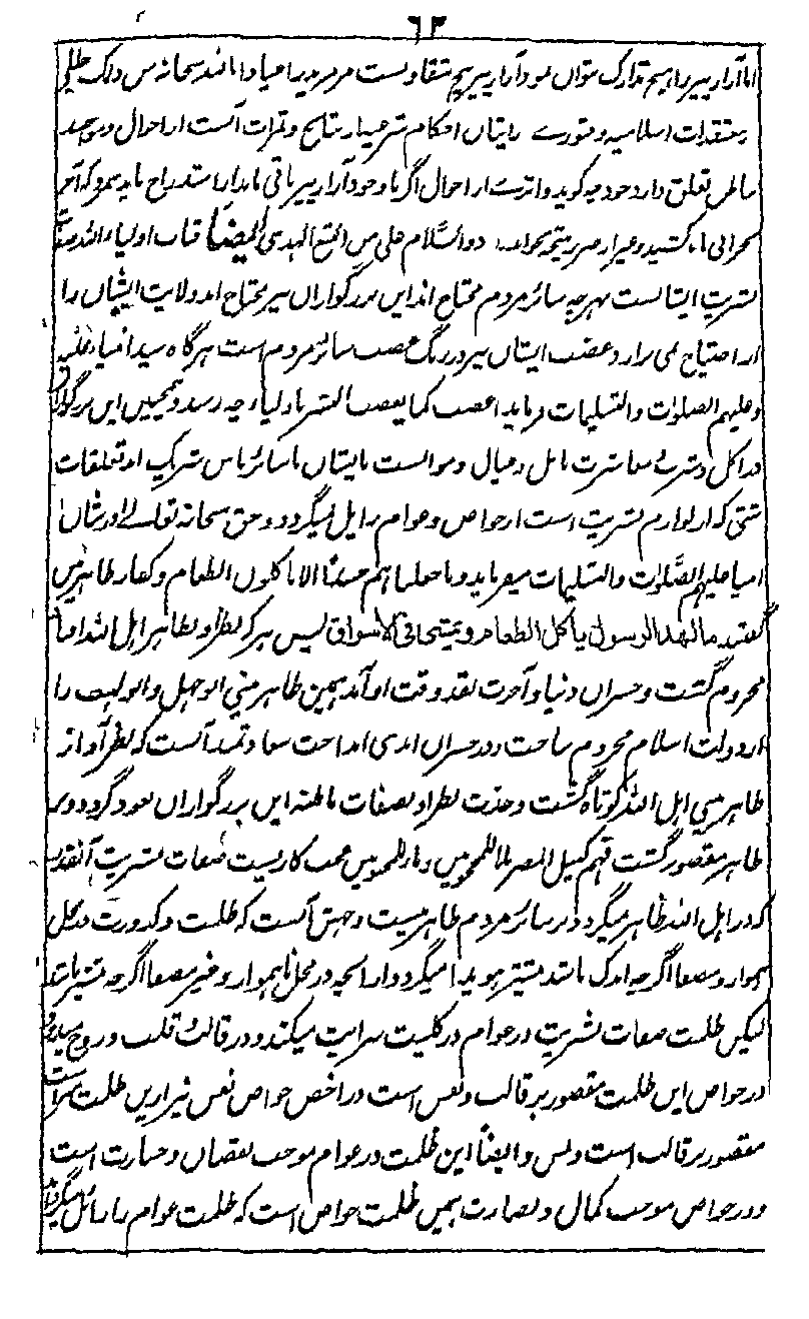 ٦٣
اما آزار پیر را هیچ تدارک نتوان نمود آزار پیر بیخ شقاوتست مر مرید را عیاذا بالله سبحانه من ذلک خللی
معتقدات اسلامیه و فتوری در اتیان احکام شرعیه از نتایج و ثمرات آنست از احوال و مواجید
باطن تعلق دارد خود چه گوید و اثری از احوال اگر با وجود آزار پیر باقی ماند از استدراج باید شمرد که آخر
بخرابی خواهد کشید و غیر از ضرر نتیجه نخواهد داد والسلام علی من اتبع الهدی ایضا قباب اولیاء الله صفات
بشریت ایشانست بهرچه سائر مردم محتاج اند این بزرگواران نیز محتاج اند ولایت ایشان را
از احتیاج نمی برارد و غضب ایشان نیز در رنگ غضب سائر مردم است هرگاه سید انبیاء علیه
و علیهم الصلوات والتسلیمات فرماید اغضب کما یغضب البشر باولیا چه رسد و همچنین این بزرگواران
در اکل و شرب و معاشرت با اهل و عیال و موانست با ایشان با سائر ناس شریک اند تعلقات
شتی که از لوازم بشریت است از خواص و عوام زایل نمیگردد و حق سبحانه تعالی در شان
انبیا علیهم الصلوات والتسلیمات میفرماید و ما جعلناهم جسدا الا یاکلون الطعام و کفار ظاهر بین
گفتند مال هذا الرسول یاکل الطعام و یمشی فی الاسواق پس هر که نظر او بظاهر اهل الله افتاد
محروم گشت و خسران دنیا و آخرت نقد وقت او آمد همین ظاهر بینی ابوجهل و ابولهب را
از دولت اسلام محروم ساخت و در خسران ابدی انداخت سعادتمند آنست که نظر او از
ظاهر بینی اهل الله کوتاه گشت و حدت نظر او بصفات باطنه این بزرگواران نفوذ گردد و بر
ظاهر مقصور گشت فهم کنیل المصر بلاء للمحجوبین و ماء للمحبوبین عجب کاریست صفات بشریت آنقدر
که در اهل الله ظاهر میگردد در سائر مردم ظاهر نیست وجهش آنست که ظلمت و کدورت در محل
هموار و مصفا اگرچه اندک باشد بیشتر هویدا میگردد و از آنچه در محل ناهموار و غیر مصفا اگرچه بیشتر باشد
لیکن ظلمت صفات بشریت در عوام در کلیت سرایت میکند و در قالب و قلب و روح میدود
در خواص این ظلمت مقصور بر قالب و نفس است در اخص خواص نفس نیز ازین ظلمت مبراست
مقصور بر قالب است و بس و ایضا این ظلمت در عوام موجب نقصان و خسارت است
و در خواص موجب کمال و نضارت همین ظلمت خواص است که ظلمت عوام را زائل میگرداند